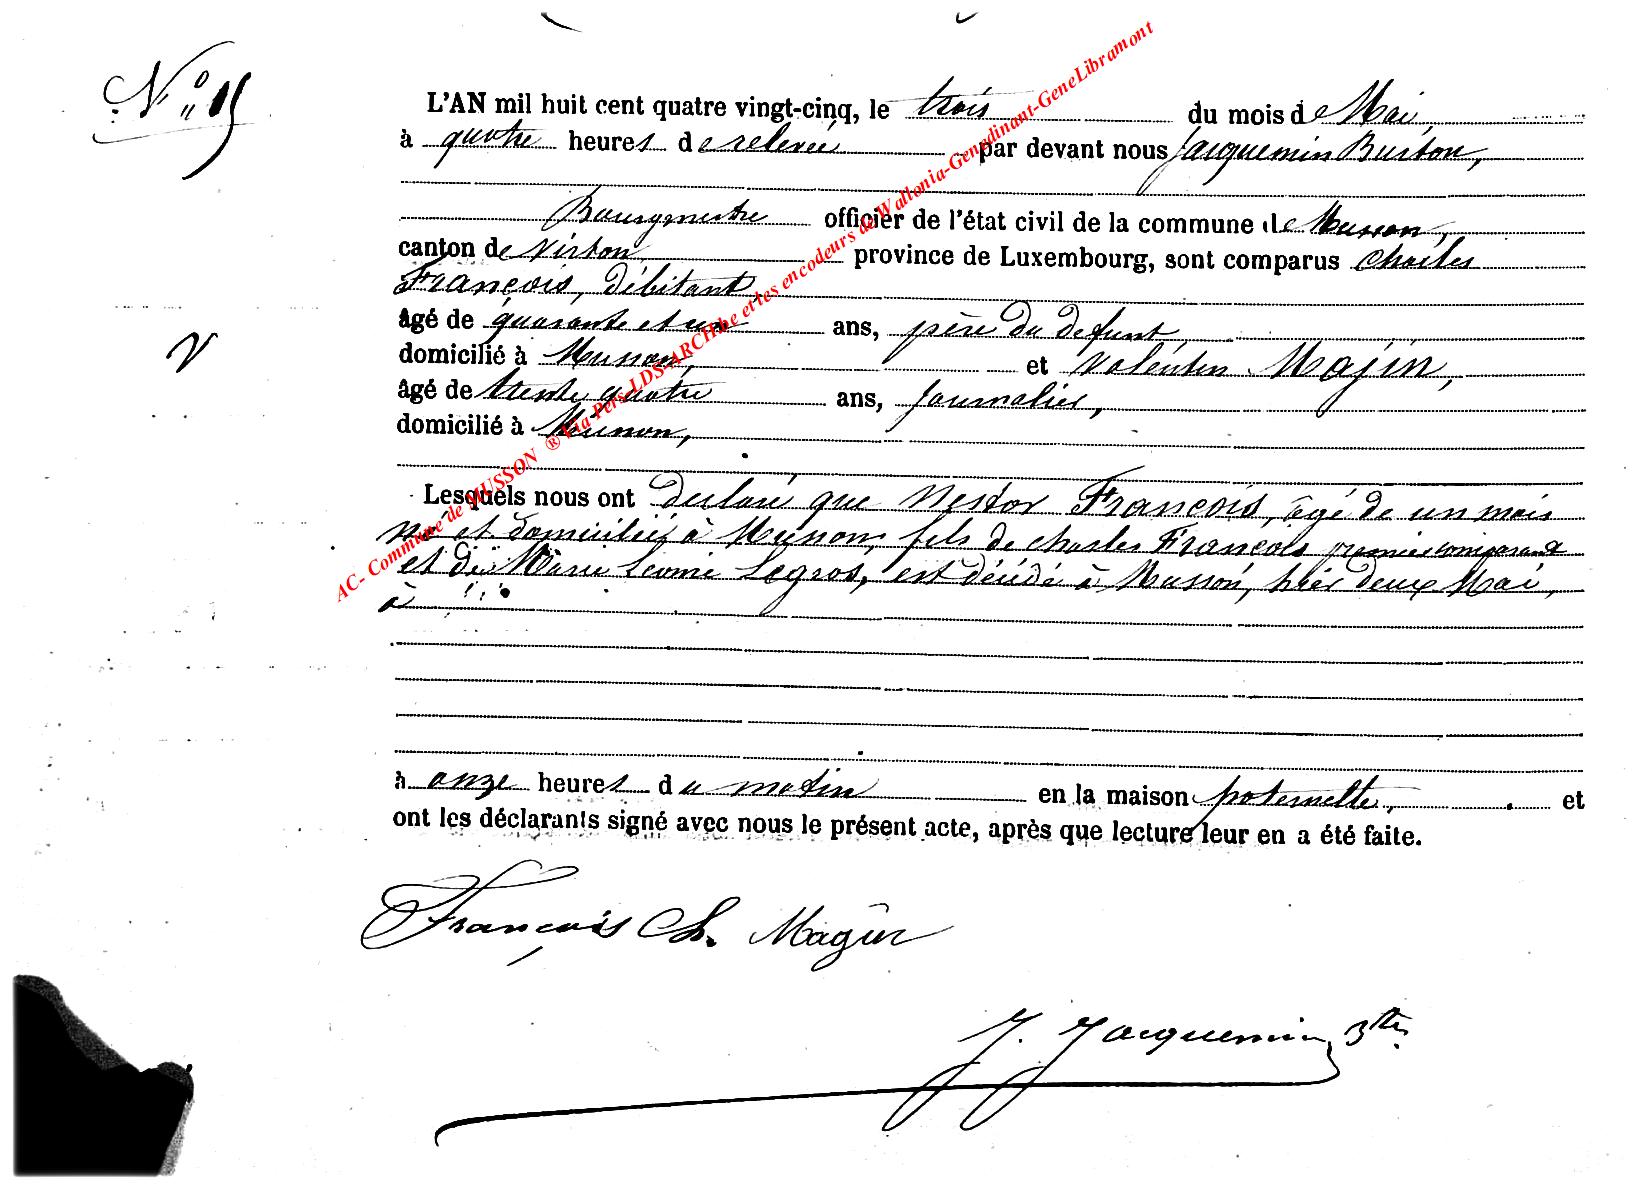 N° 15
L'AN mil huit cent quatre vingt-cinq, le trois du mois de Mai,
à quatre heures de relevée par devant nous Jacquemin Burton,
Bourgmestre officier de l'état civil de la commune de Musson,
canton de Virton province de Luxembourg, sont comparus Charles
François, débitant,
âgé de quarante et un ans, père du défunt,
domicilié à Musson, et Valentin Majin,
âgé de trente quatre ans, journalier,
domicilié à Musson,
Lesquels nous ont déclaré que Nestor François, âgé de un mois
né et domicilié à Musson, fils de Charles François premier comparant
et de Marie Léonie Legros, est décédé à Musson, hier deux Mai,
à
à onze heures du matin en la maison paternelle, et
ont les déclarants signé avec nous le présent acte, après que lecture leur en a été faite.
François Ch. Magin
J. Jacquemin Btn
AC- Commune de MUSSON ® Via Pers-LDS-ARCH.be et les encodeurs de Wallonia-Genedinant-GeneLibramont